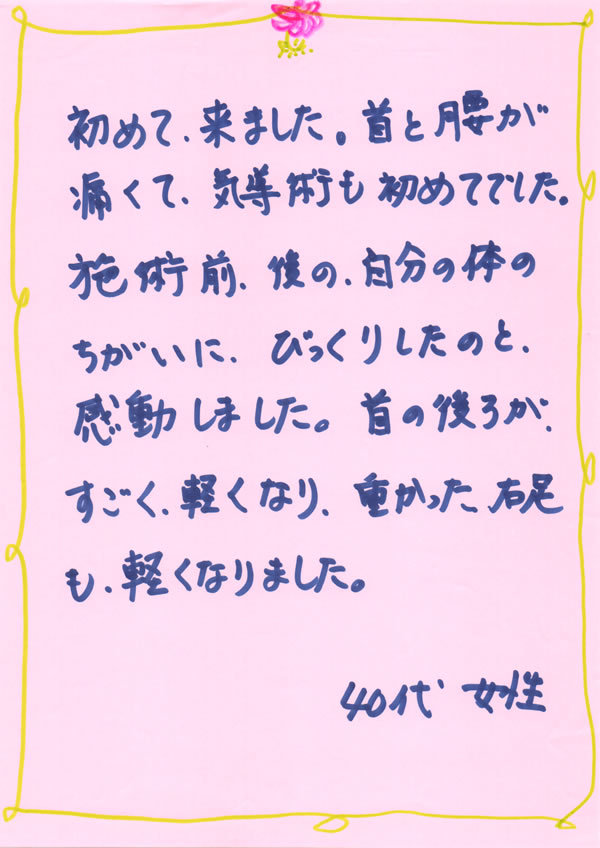 初めて、来ました。首と腰が
痛くて、気導術も初めてでした。
施術前、後の、自分の体の
ちがいに、びっくりしたのと、
感動しました。首の後ろが、
すごく、軽くなり、重かった、右足
も、軽くなりました。
40代 女性